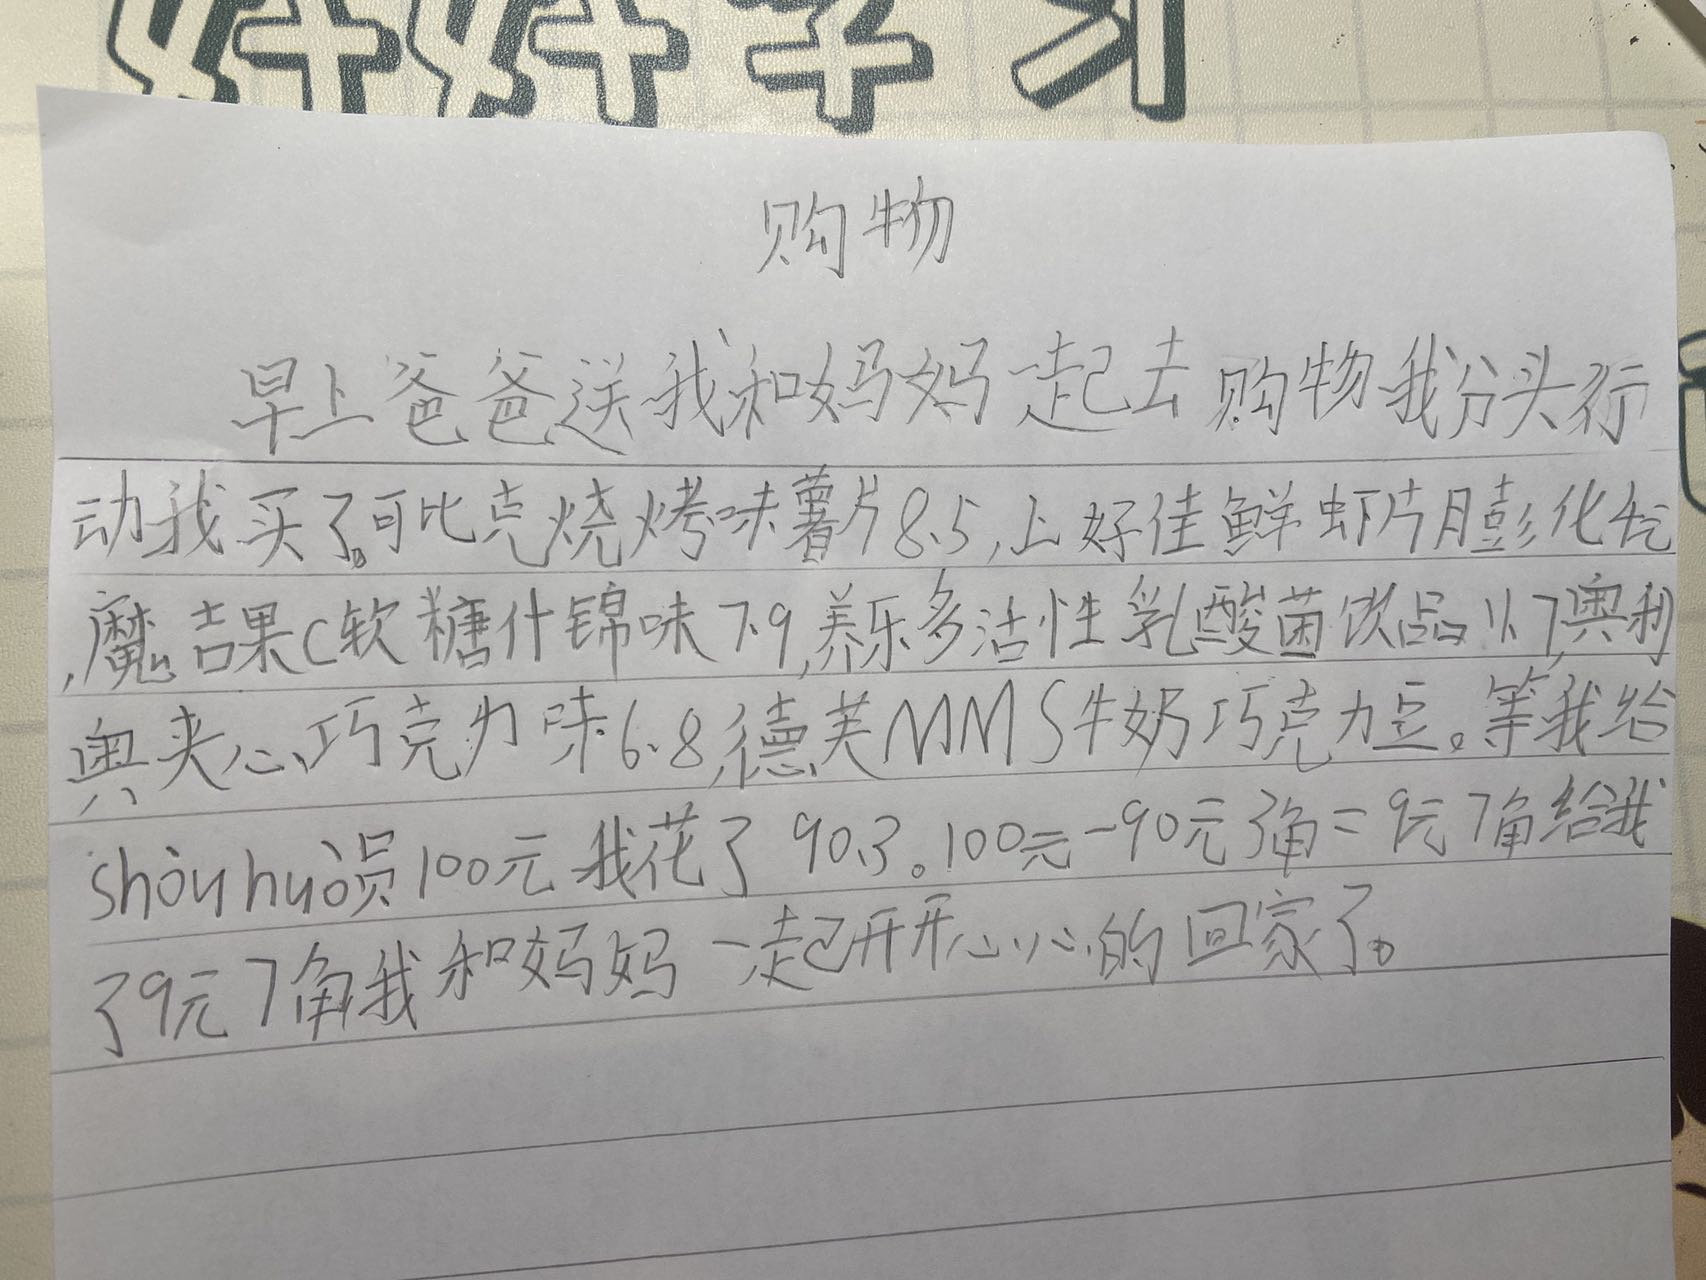 好好学习
购物
早上爸爸送我和妈妈一起去购物我分头行
动我买了。可比克烧烤味薯片8.5,上好佳鲜虾片膨化
,魔吉果C软糖什锦味7.9,养乐多活性乳酸菌饮品,奥利
奥夹心巧克力味6.8,德芙MMS牛奶巧克力豆。等我给
shòu huò员100元我花了90.3。100元-90元3角=9元7角给我
了9元7角我和妈妈一起开开心心的回家了。